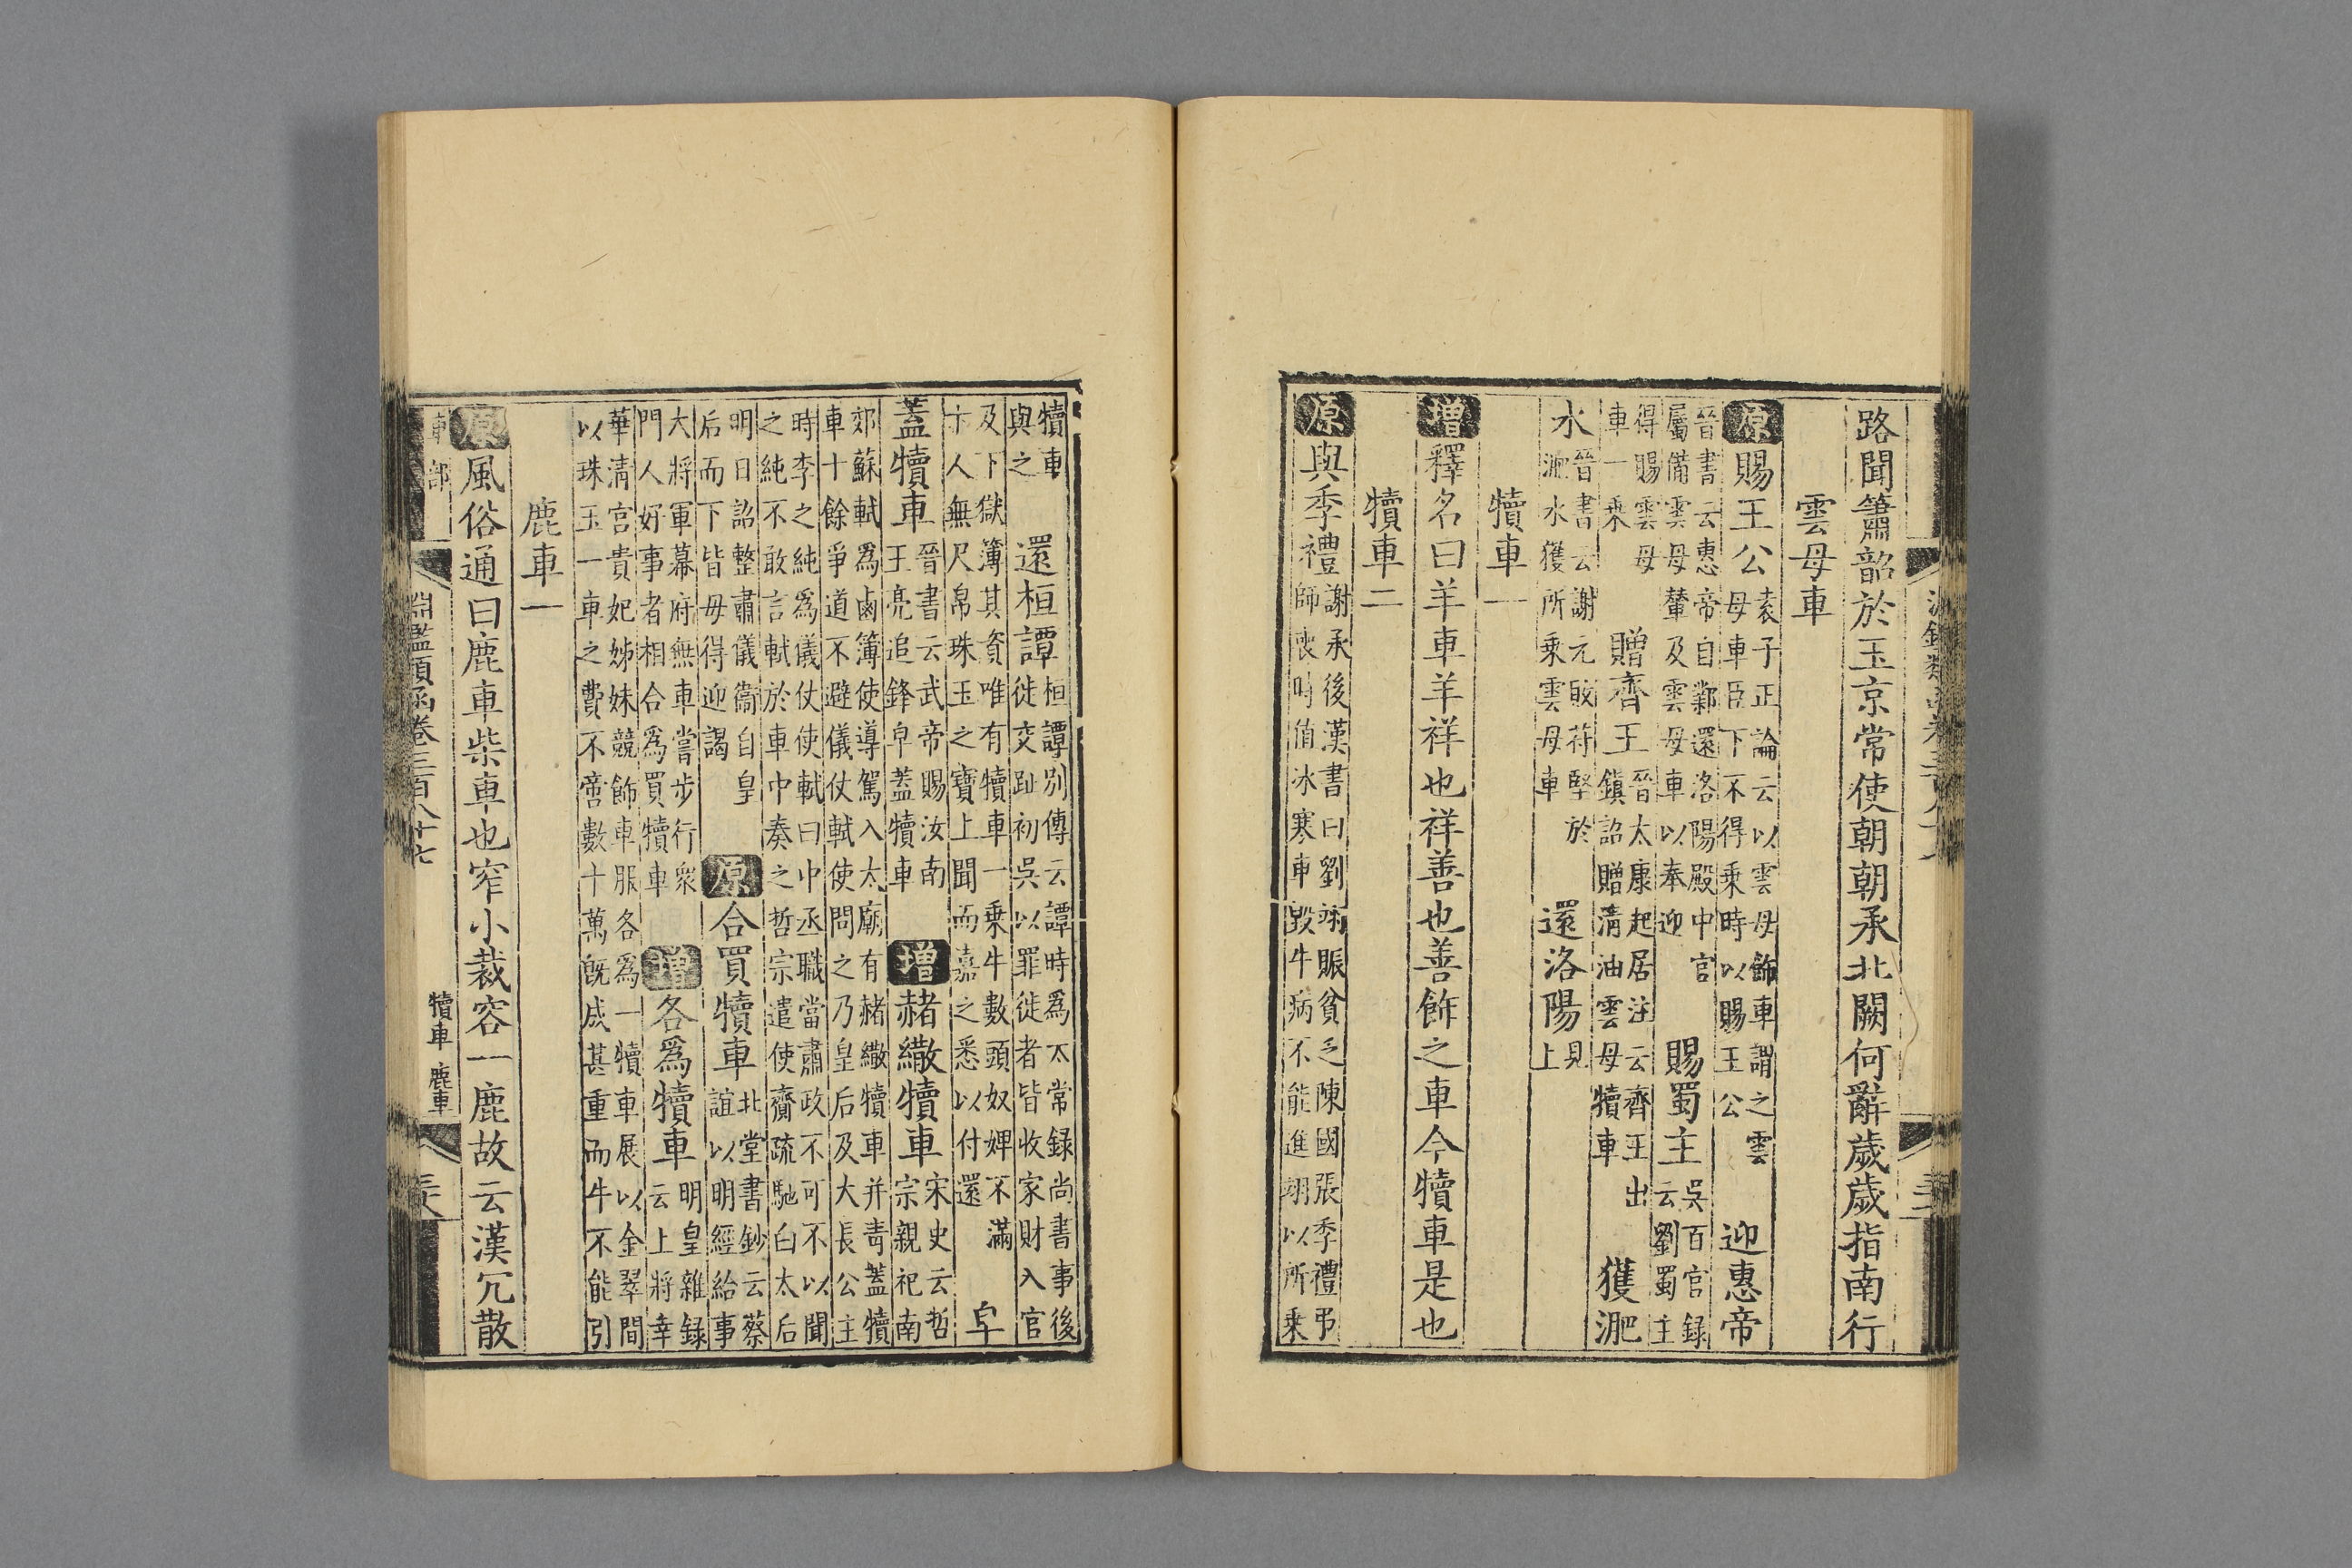 路聞簫韶於玉京常使朝朝承北闕何辭歲歲指南行
雲母車
原賜王公袁子正論云以雲母飾車謂之雲母車臣下不得乘時以賜王公 迎惠帝
晉書云惠帝自鄴還洛陽殿中官屬備雲母輦及雲母車以奉迎 賜蜀主吳百官録云劉蜀主
得賜雲母車一乘 贈齊王晉太康起居注云齊王出鎮詔贈清油雲母犢車 獲淝
水晉書云謝元敗苻堅於淝水獲所乘雲母車 還洛陽見上
犢車一
增釋名曰羊車羊祥也祥善也善飾之車今犢車是也
犢車二
原與季禮謝承後漢書曰劉翊賑貧乏陳國張季禮弔師喪時值冰寒車毀牛病不能進翊以所乘
犢車與之 還桓譚桓譚別傳云譚時爲太常録尚書事後徙交趾初吳以罪徙者皆收家財入官
及下獄簿其資唯有犢車一乘牛數頭奴婢不滿十人無尺帛珠玉之寶上聞而嘉之悉以付還 皁
蓋犢車晉書云武帝賜汝南王亮追鋒皁蓋犢車 增赭繖犢車宋史云哲宗親祀南
郊蘇軾爲鹵簿使導駕入太廟有赭繖犢車并青蓋犢車十餘爭道不避儀仗軾使問之乃皇后及大長公主
時李之純爲儀仗使軾曰中丞職當肅政不可不以聞之純不敢言軾於車中奏之哲宗遣使齎疏馳白太后
明日詔整肅儀衞自皇后而下皆毋得迎謁 原合買犢車北堂書鈔云蔡誼以明經給事
大將軍幕府無車嘗步行衆門人好事者相合爲買犢車 增各爲犢車明皇雜録云上將幸
華清宫貴妃姊妹競飾車服各爲一犢車展以金翠間以珠玉一車之費不啻數十萬旣成甚重而牛不能引
鹿車一
原風俗通曰鹿車柴車也窄小裁容一鹿故云漢冗散
車部 淵鑑類函卷三百八十七 犢車 鹿車